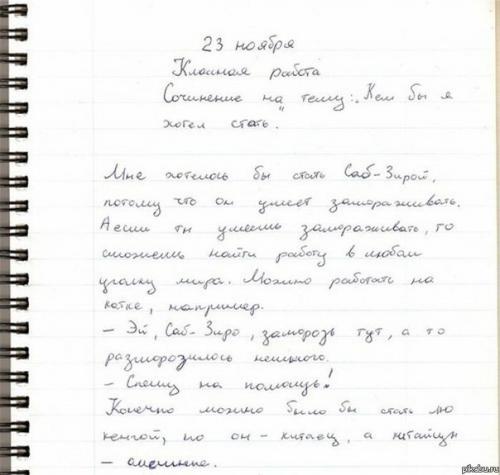 23 ноября
Классная работа
Сочинение на тему: „Кем бы я
хотел стать.
Мне хотелось бы стать Саб-Зирой,
потому что он умеет замораживать.
А если ты умеешь замораживать, то
сможешь найти работу в любом
уголку мира. Можно работать на
катке, например.
– Эй, Саб-Зиро, заморозь тут, а то
разморозилось немного.
– Спешу на помощь!
Конечно можно было бы стать лю
кенгой, но он – китаец, а китайцы
–
pikabu.ru